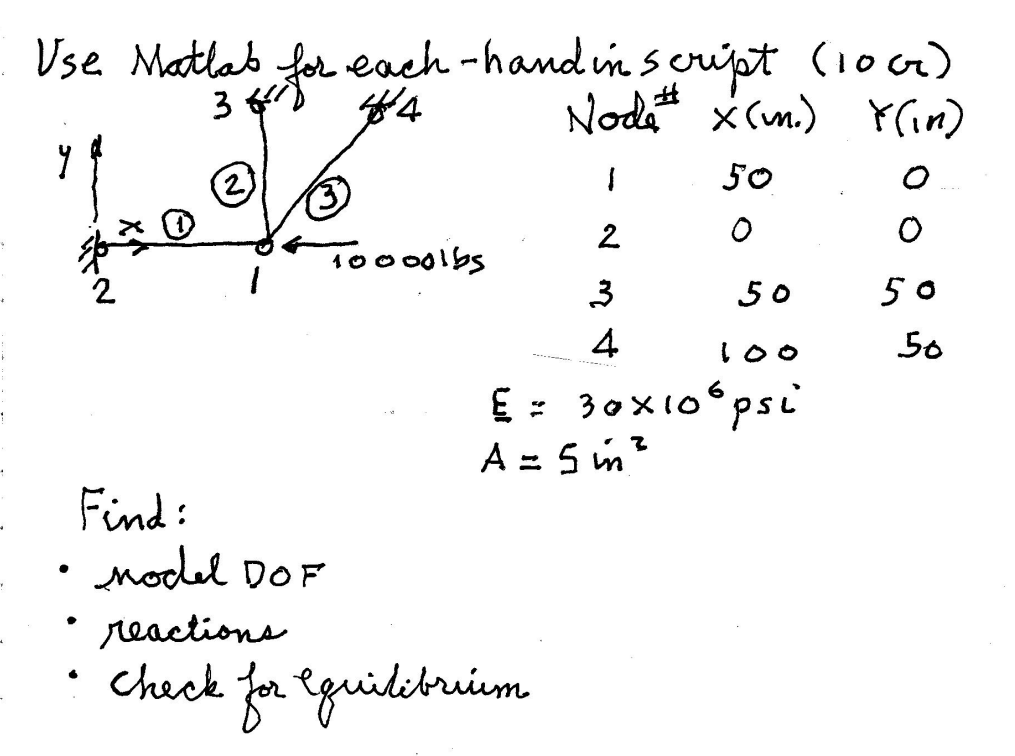 Use Matlab for each - hand in script (10 cr)
3 4
Node# X (in.) Y (in)
y
2 3
1 50 0
x 1
2 0 0
10000lbs
2 1
3 50 50
4 100 50
E = 30x10⁶ psi
A = 5 in²
Find:
• nodel DOF
• reactions
• check for equilibrium